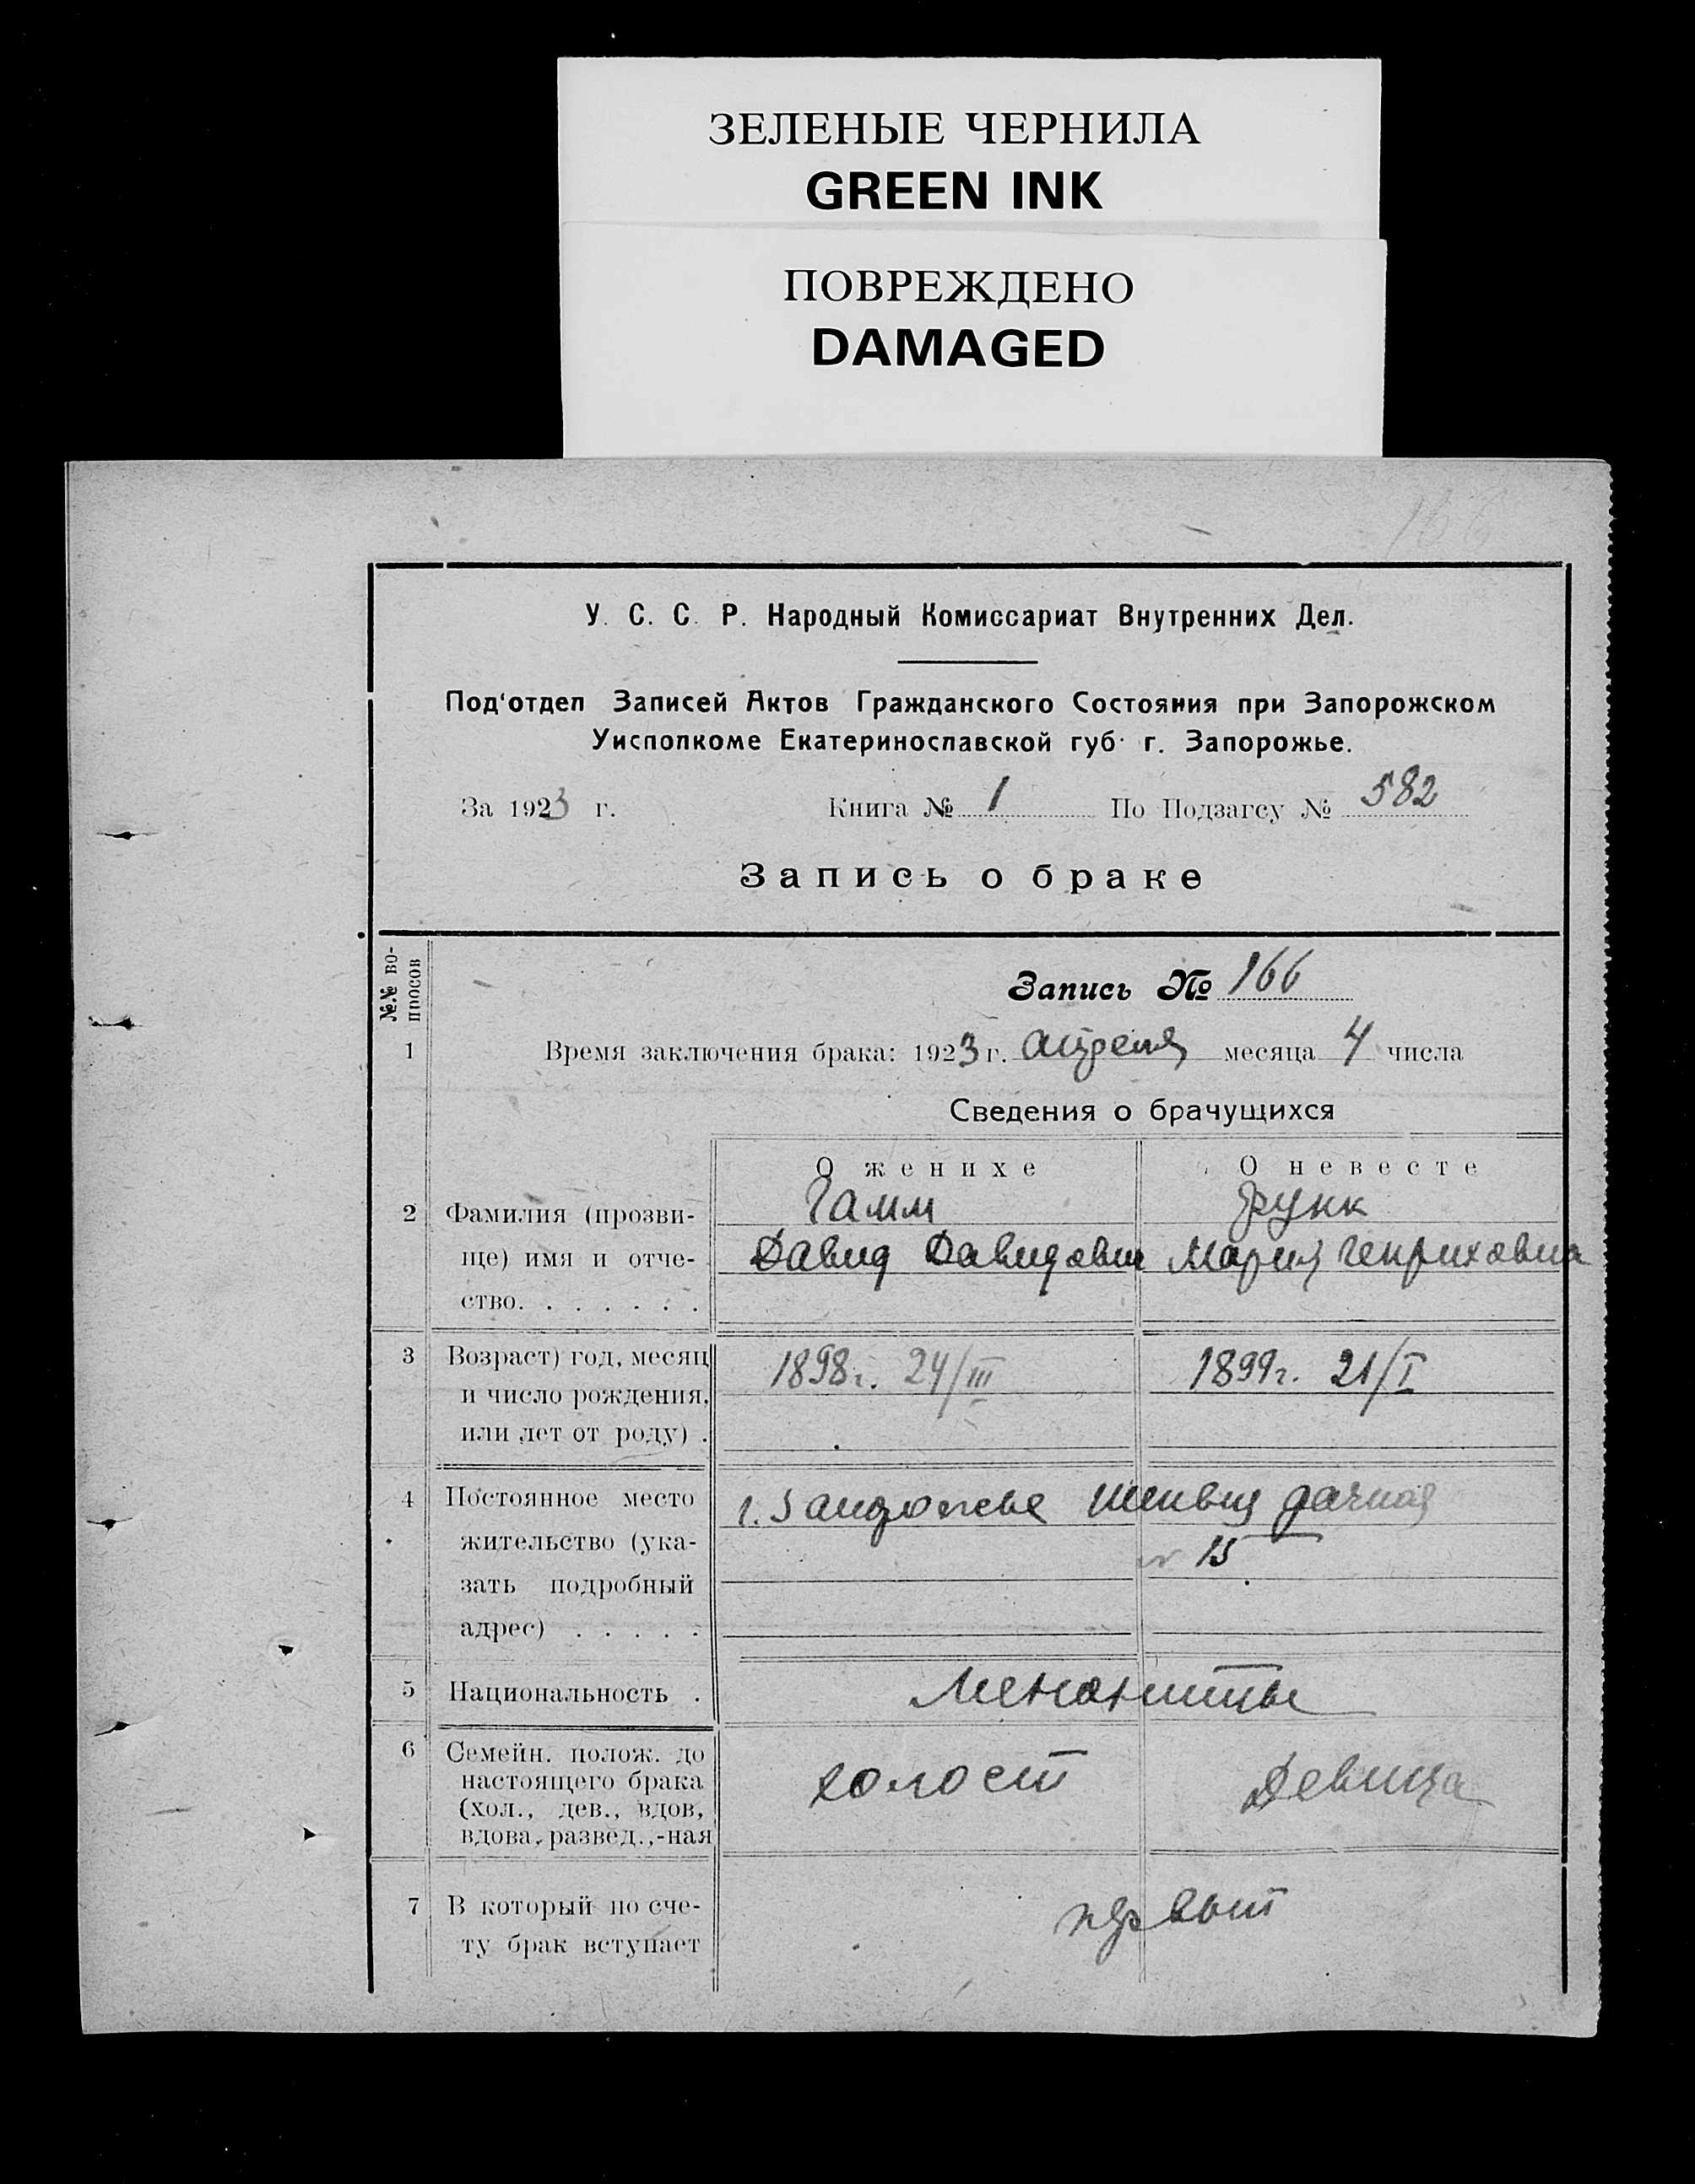 ЗЕЛЕНЫЕ ЧЕРНИЛА
GREEN INK
ПОВРЕЖДЕНО
DAMAGED
166
У. С. С. Р. Народный Комиссариат Внутренних Дел.
Под'отдел Записей Актов Гражданского Состояния при Запорожском
Уисполкоме Екатеринославской губ. г. Запорожье.
За 1923 г. Книга № 1 По Подзагсу № 582
Запись о браке
№№ во-
просов
Запись № 166
1 Время заключения брака: 1923 г. апреля месяца 4 числа
Сведения о брачущихся
О женихе О невесте
2 Фамилия (прозви- Гамм Функ
ще) имя и отче- Давид Давидович Мария Генриховна
ство. . . . . . .
3 Возраст) год, месяц 1898г. 24/III 1899г. 21/I
и число рождения,
или лет от роду) .
4 Постоянное место г. Запорожье дачная
жительство (ука- № 15
зать подробный
адрес) . . . . .
5 Национальность . Менониты
6 Семейн. полож. до
настоящего брака холост Девица
(хол., дев., вдов,
вдова, развед.,-ная
7 В который по сче- первый
ту брак вступает